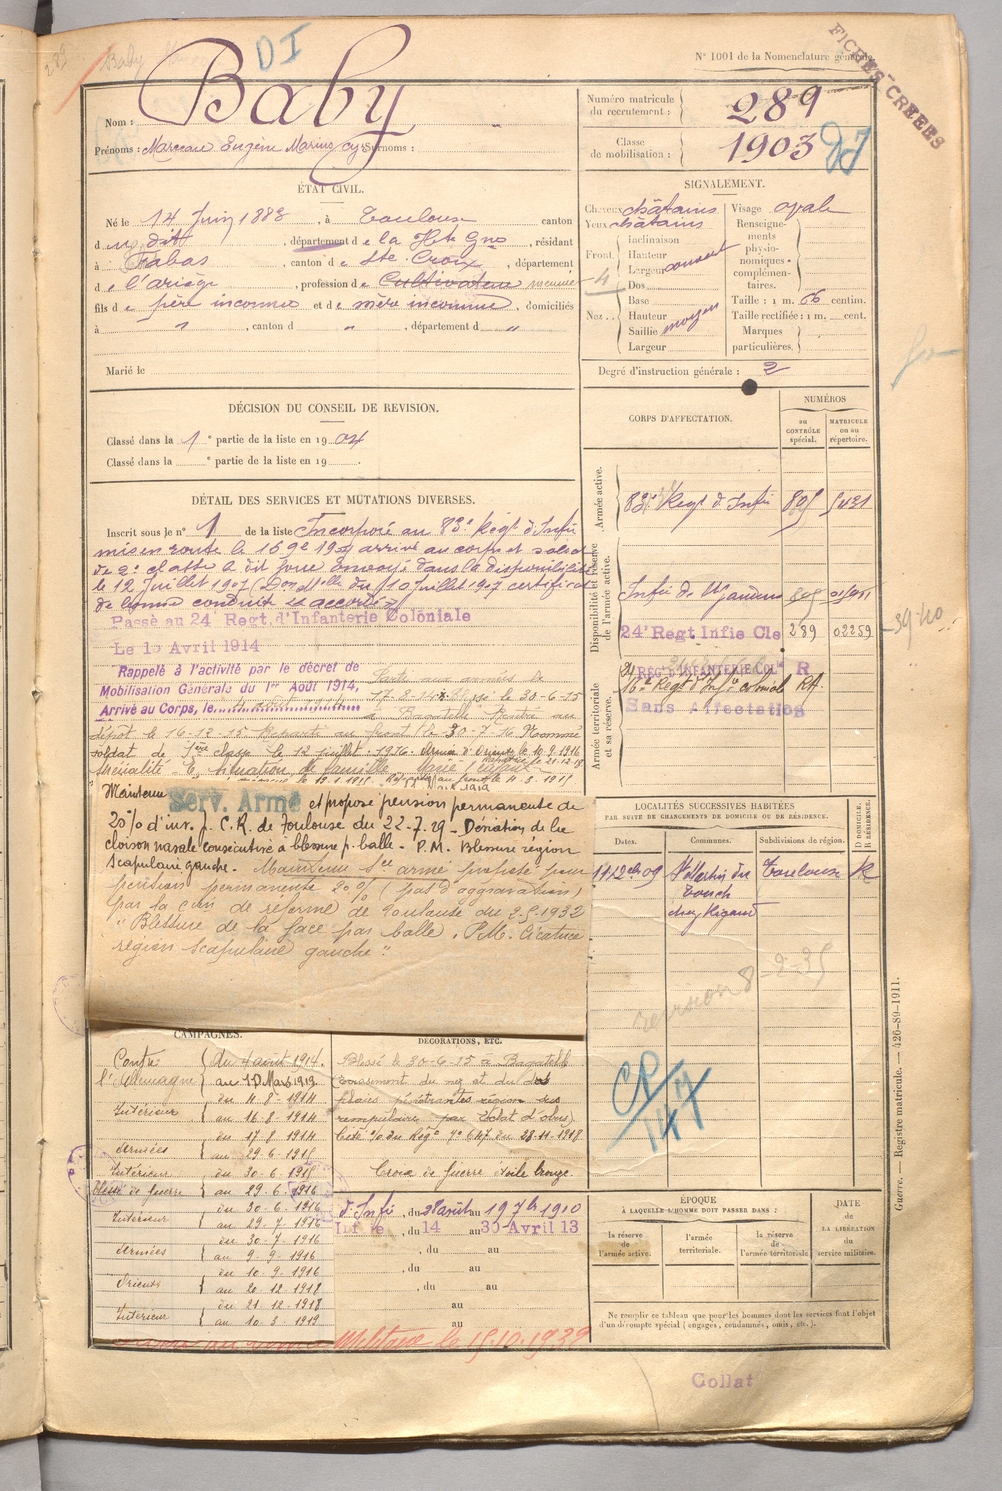 289
Baby
DI
N° 1001 de la Nomenclature générale.
FICHES CRÉÉES
Nom : Baby
Prénoms : Marceau Eugène Marius Surnoms :
Numéro matricule du recrutement : 289
Classe de mobilisation : 1903
ÉTAT CIVIL.
Né le 14 Juin 1883, à Toulouse canton
d u dit, département de la Hte Gne, résidant
à Fabas, canton de Ste Croix, département
de l'ariège, profession de Cultivateur
fils de père inconnu et de mère inconnue, domiciliés
à " , canton d " , département d "
Marié le
SIGNALEMENT.
Cheveux châtains Visage ovale
Yeux châtains
Front
Inclinaison
Hauteur
Largeur couvert
Nez
Dos
Base
Hauteur
Saillie moyen
Largeur
Renseignements physionomiques complémentaires.
Taille : 1 m. 66 centim.
Taille rectifiée : 1 m. cent.
Marques particulières.
Degré d'instruction générale : 2
DÉCISION DU CONSEIL DE REVISION.
Classé dans la 1e partie de la liste en 1904
Classé dans la e partie de la liste en 19 .
CORPS D'AFFECTATION.
NUMÉROS
au CONTRÔLE spécial.
MATRICULE ou au répertoire.
Armée active.
83e Regt d'Infie 805 5431
Disponibilité et réserve de l'armée active.
Infie de 805
24e Regt Infie Cle 289 02259
39-40
Armée territoriale et sa réserve.
24 REGt D'INFANTERIE COLle R
16e Regt d'Infie coloniale RA
Sans Affectation
DÉTAIL DES SERVICES ET MUTATIONS DIVERSES.
Inscrit sous le n° 1 de la liste Incorporé au 83e Régt d'Infie
mis en route le arrivé au corps et soldat
de 2e classe le dit jour envoyé dans la disponibilité
le 12 Juillet 1907 du 10 Juillet 1907 certificat
de bonne conduite accordé
Passé au 24 Regt. d'Infanterie Coloniale
Le 1o Avril 1914
Rappelé à l'activité par le décret de
Mobilisation Générale du 1er Août 1914,
Arrivé au Corps, le
Parti aux armées le
17-8-14 Blessé le 30-6-15
à Bagatelle Rentré au
dépôt le 16-12-15 Reparti au front le 30-7-16 Nommé
soldat de 1ère classe le 12 juillet 1916. Armée d'Orient le 10-9-1916
situation de famille
Maintenu Serv. Armé et proposé pension permanente de
20% d'inv. J. C. R. de Toulouse du 22-7-29 - Déviation de la
cloison nasale consécutive à blessure p. balle - P.M. Blessure région
scapulaire gauche. - Maintenu Sce armé proposé pour
pension permanente 20% (pas d'aggravation)
par la con de réforme de Toulouse du 2-5-1932
"Blessure de la face par balle. P.M. Cicatrice
région scapulaire gauche".
LOCALITÉS SUCCESSIVES HABITÉES
PAR SUITE DE CHANGEMENTS DE DOMICILE OU DE RÉSIDENCE.
Dates. Communes. Subdivisions de région. D DOMICILE. R RÉSIDENCE.
11-12bre 09 St Martin du Touch chez Rigaud Toulouse R
revision 8-2-35
CP/147
CAMPAGNES.
Contre l'Allemagne
du 4 août 1914.
au 10 Mars 1919
Intérieur
du 4-8-1914
au 16-8-1914
Armées
du 17-8-1914
au 29-6-1915
Intérieur blessé de guerre
du 30-6-1915
au 29-6-1916
Intérieur
du 30-6-1916
au 29-7-1916
Armées
du 30-7-1916
au 9-9-1916
Orient
du 10-9-1916
au 20-12-1918
Intérieur
du 21-12-1918
au 10-3-1919
DÉCORATIONS, ETC.
Blessé le 30-6-15 à Bagatelle
du nez et du dos
plaies pénétrantes région sus
par éclat d'obus)
Cité O/ du Régt n° 647 du 28-11-1918
Croix de Guerre étoile bronze.
d'Infie, du 28 août au 19 7bre 1910
Infie, du 14 au 30 Avril 13
, du au
, du au
, du au
au
au
Militaire le 15.10.1939
ÉPOQUE
À LAQUELLE L'HOMME DOIT PASSER DANS :
la réserve de l'armée active.
l'armée territoriale.
la réserve de l'armée territoriale.
DATE de LA LIBÉRATION du service militaire.
Ne remplir ce tableau que pour les hommes dont les services font l'objet
d'un décompte spécial (engagés, condamnés, omis, etc.).
Guerre. — Registre matricule. — 426-89-1911.
Collat